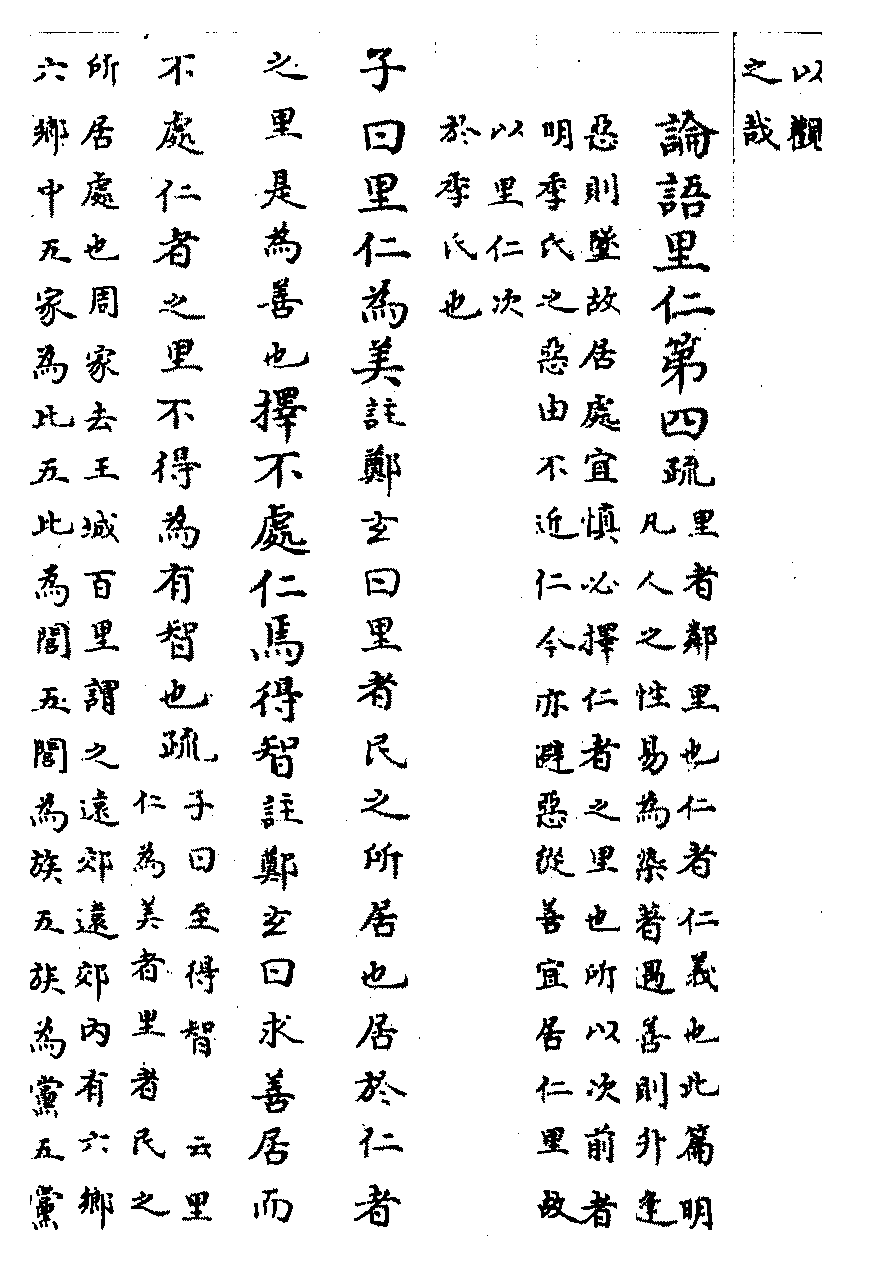 以觀
之哉
論語里仁第四疏
里者鄰里也仁者仁義也此篇明
凡人之性易為染著遇善則升逢
惡則墜故居處宜慎必擇仁者之里也所以次前者
明季氏之惡由不近仁今亦避惡從善宜居仁里故
以里仁次
於季氏也
子曰里仁為美註鄭玄曰里者民之所居也居於仁者
之里是為善也擇不處仁焉得智註鄭玄曰求善居而
不處仁者之里不得為有智也疏
子曰至得智 云里
仁為美者里者民之
所居處也周家去王城百里謂之遠郊遠郊內有六鄉
六鄉中五家為比五比為閭五閭為族五族為黨五黨